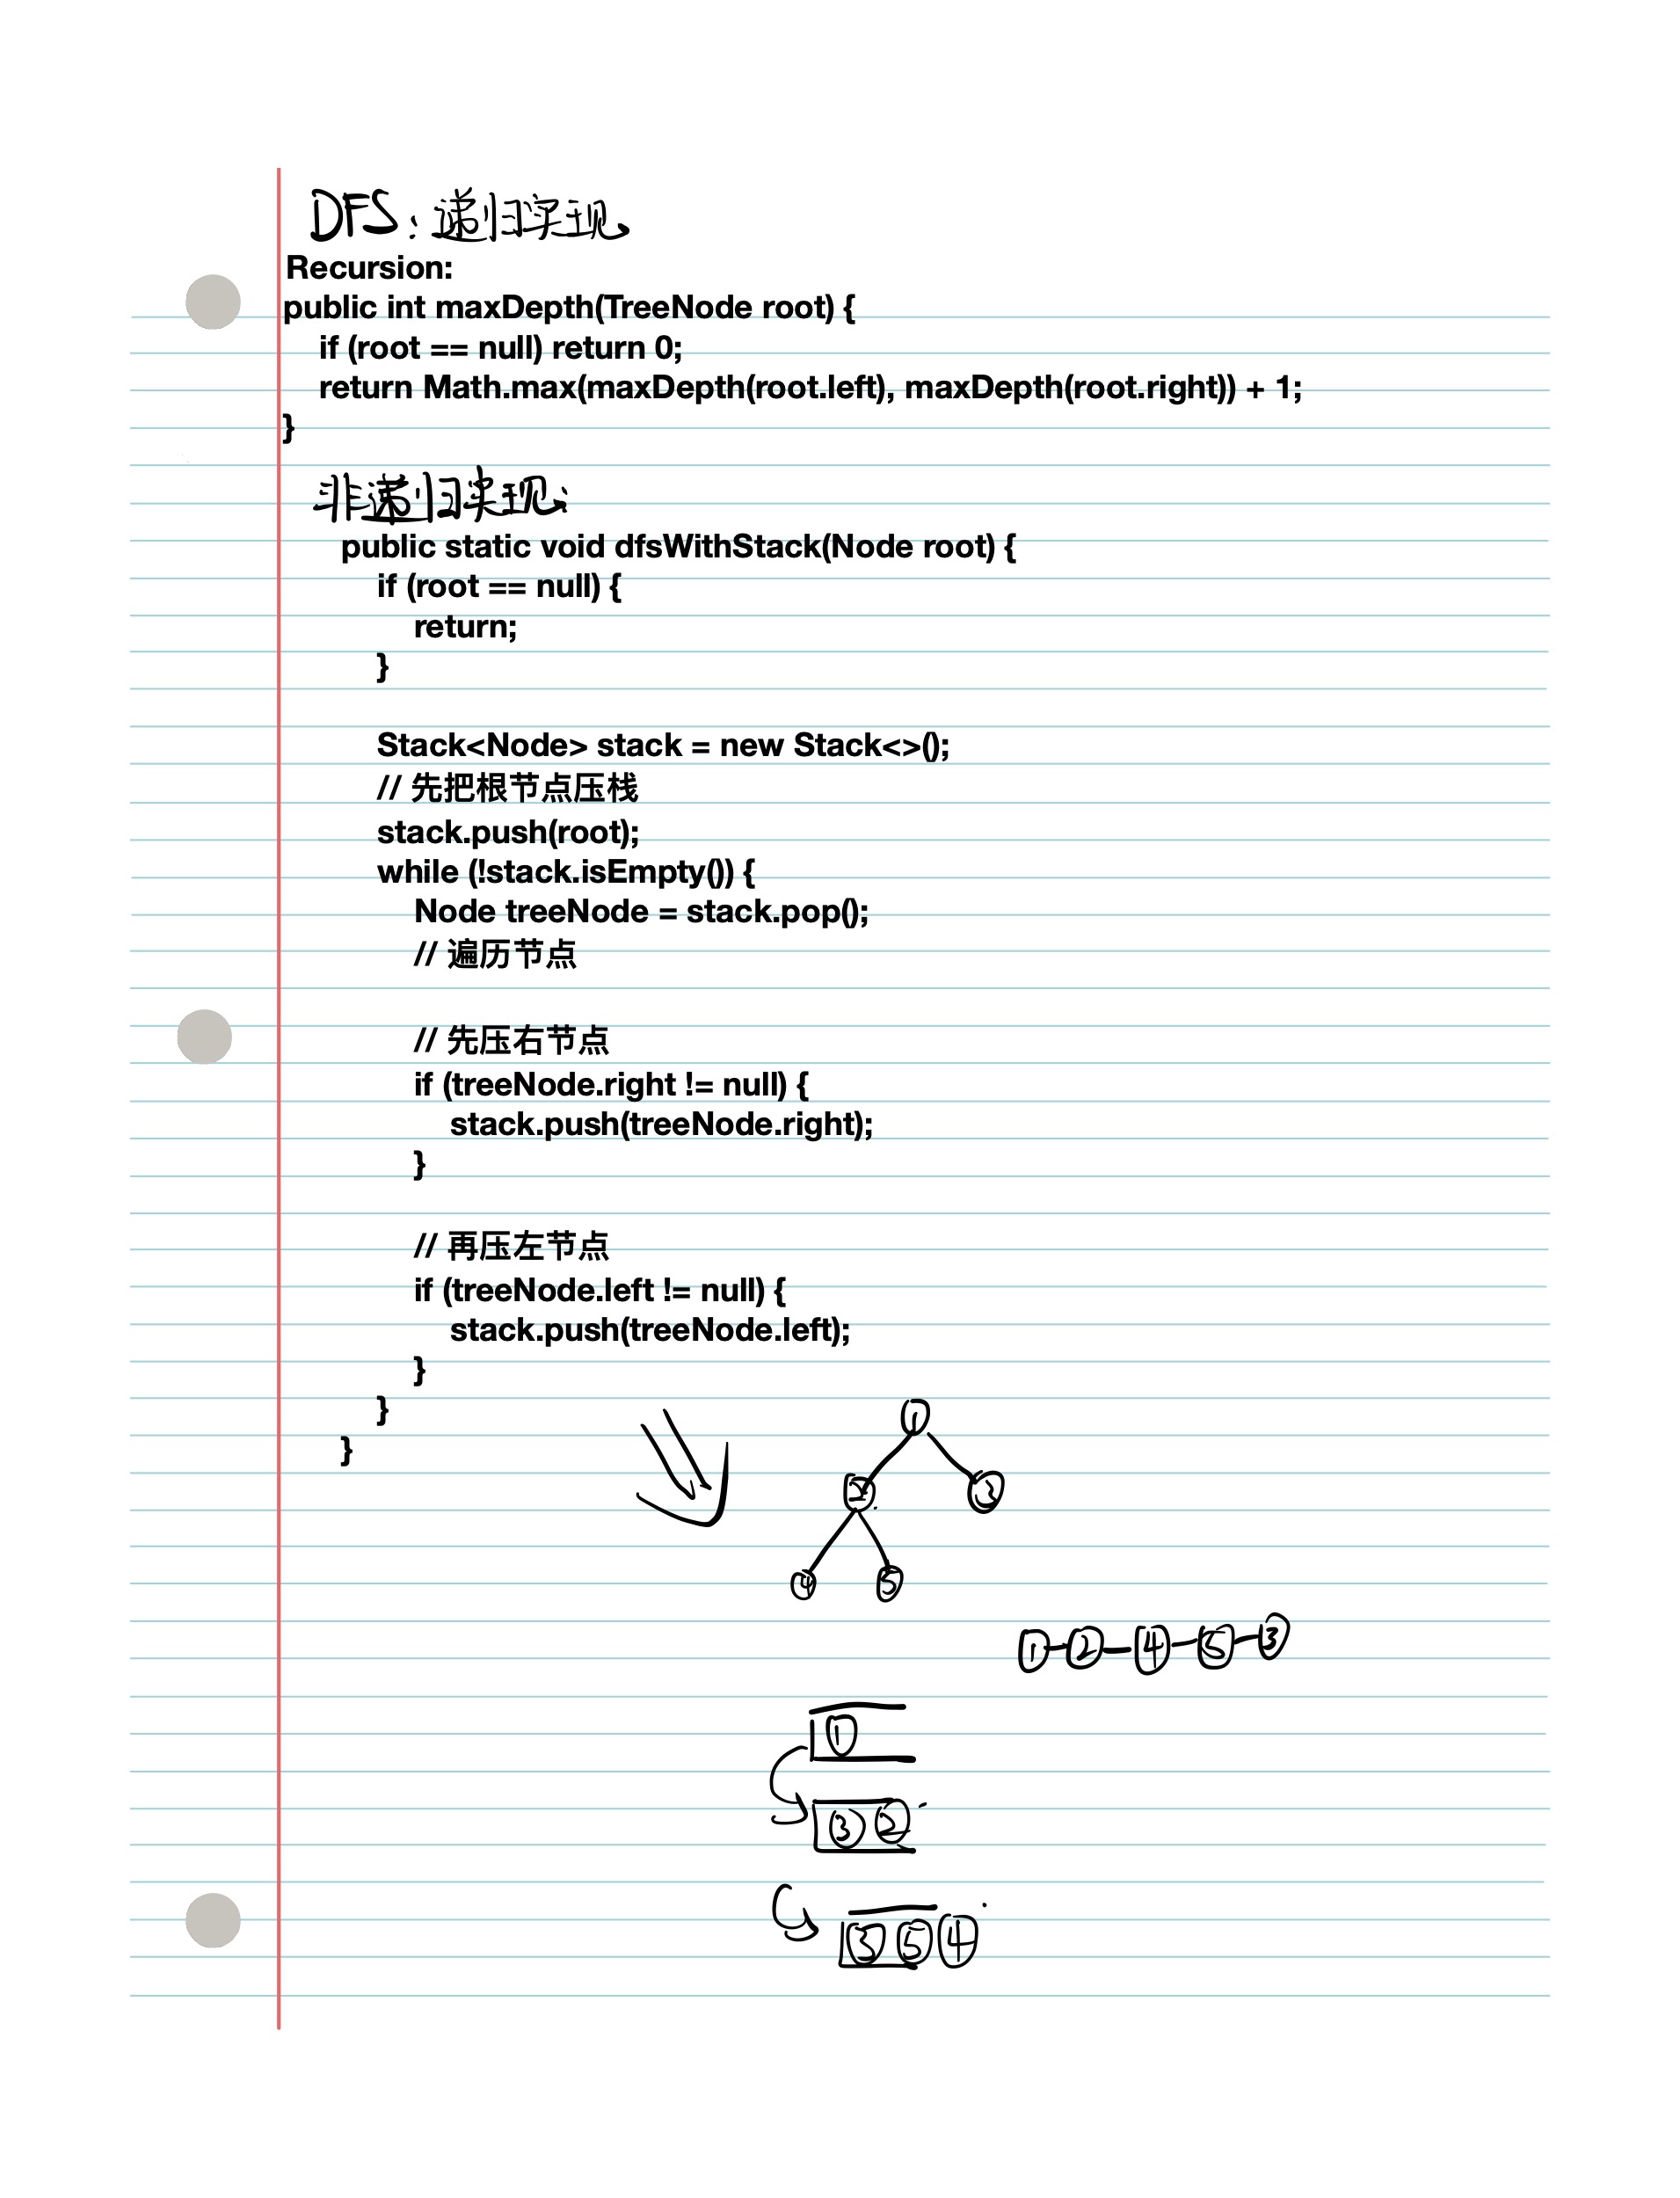 DFS: 递归实现
Recursion:
public int maxDepth(TreeNode root) {
if (root == null) return 0;
return Math.max(maxDepth(root.left), maxDepth(root.right)) + 1;
}
非递归实现:
public static void dfsWithStack(Node root) {
if (root == null) {
return;
}
Stack<Node> stack = new Stack<>();
// 先把根节点压栈
stack.push(root);
while (!stack.isEmpty()) {
Node treeNode = stack.pop();
// 遍历节点
// 先压右节点
if (treeNode.right != null) {
stack.push(treeNode.right);
}
// 再压左节点
if (treeNode.left != null) {
stack.push(treeNode.left);
}
}
}
1
2 3
4 5
1 2 4 5 3
1
3 2
3 5 4